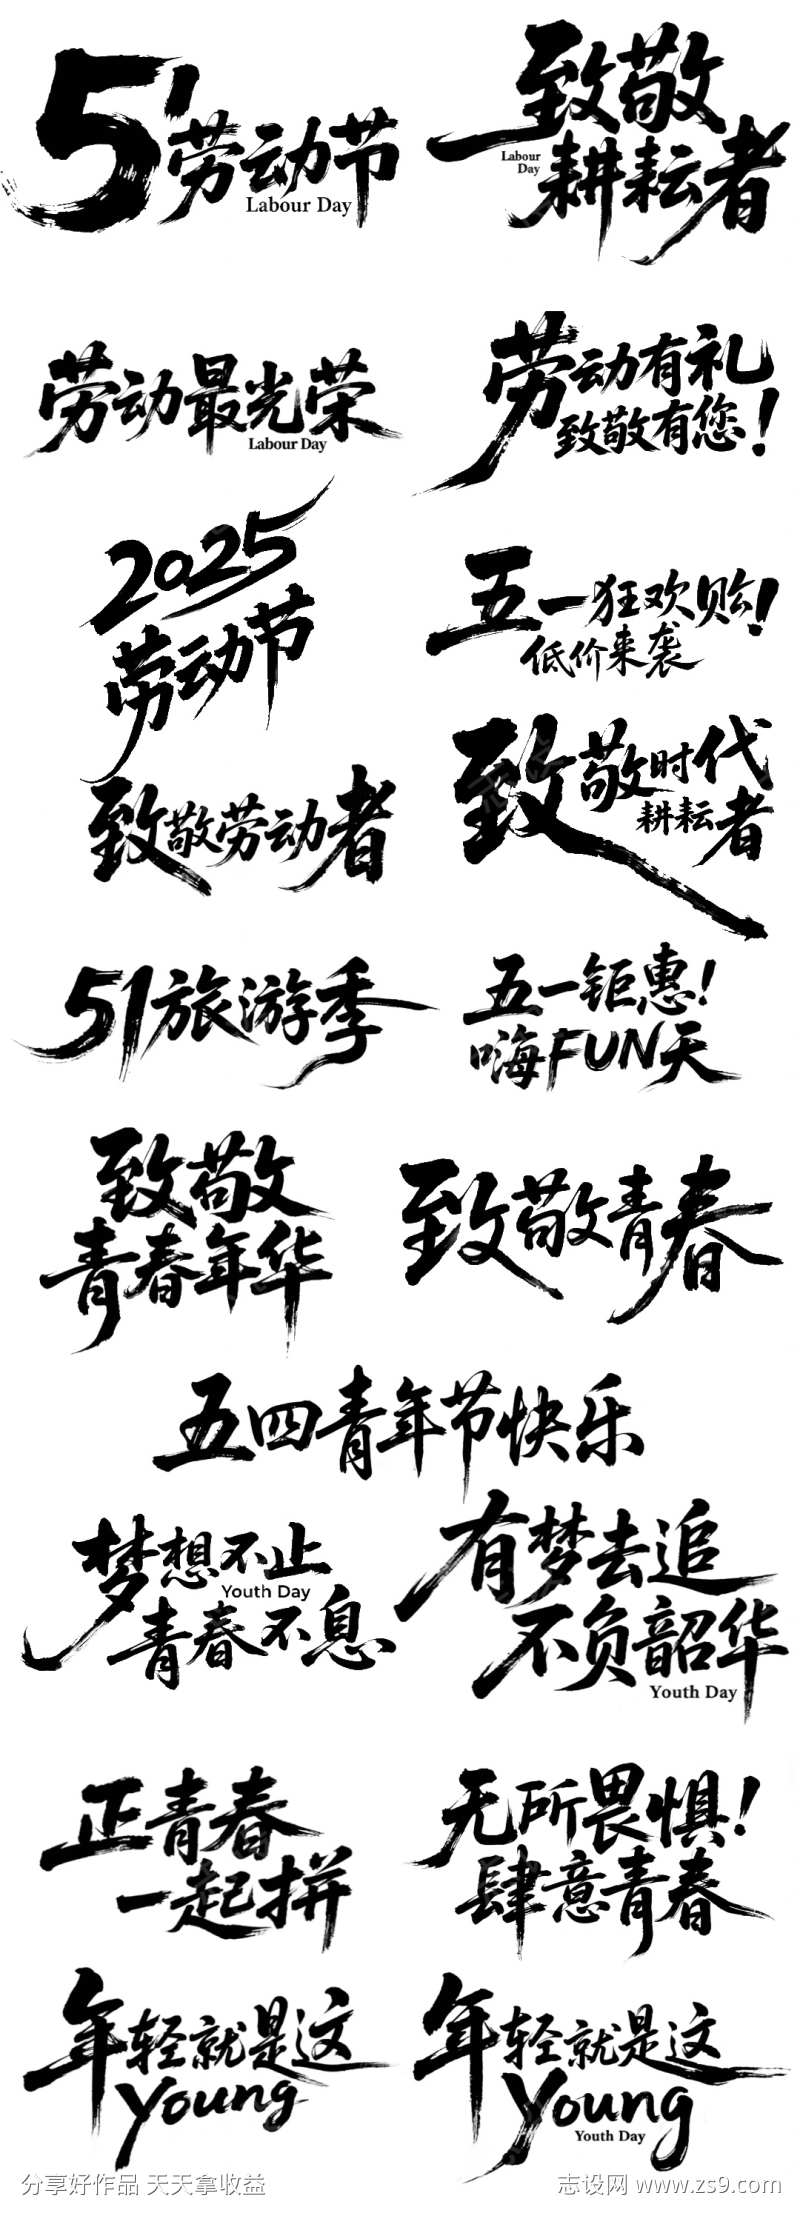 51劳动节
Labour Day
致敬
Labour
Day
耕耘者
劳动最光荣
Labour Day
劳动有礼
致敬有您!
2025
劳动节
五一狂欢购!
低价来袭
致敬劳动者
致敬时代
耕耘者
51旅游季
五一钜惠!
嗨FUN天
致敬
青春年华
致敬青春
五四青年节快乐
梦想不止
Youth Day
青春不息
有梦去追
不负韶华
Youth Day
正青春
一起拼
无所畏惧!
肆意青春
年轻就是这
young
年轻就是这
young
Youth Day
分享好作品 天天拿收益
志设网 www.zs9.com